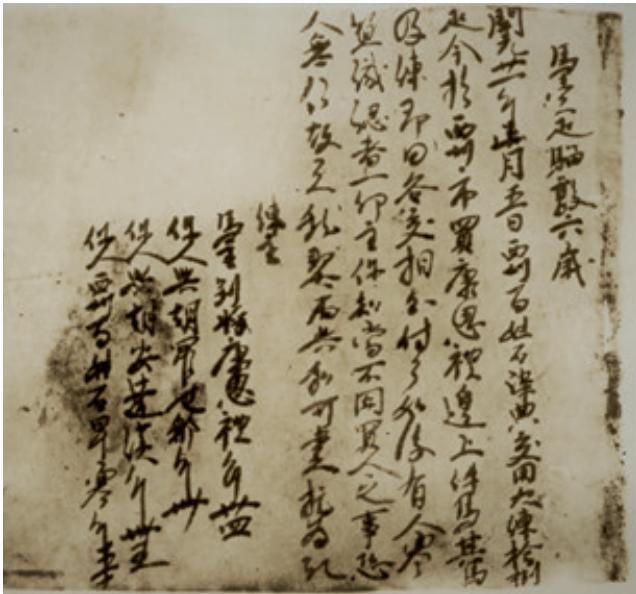 馬壹疋騮敦六歲
開元廿一年正月五日西州百姓石染典交用大練拾捌
疋今於西州市買康思禮邊上件馬其馬
及練即日各交相分付了如後有人寒
盜識認者一仰主保知當不關買人之事恐
人無信故立私契兩共和可畫指為記
練主
馬主別將康思禮年卅四
保人興胡羅世那年卌
保人興胡安達漢年卌五
保人西州百姓石早寒年五十